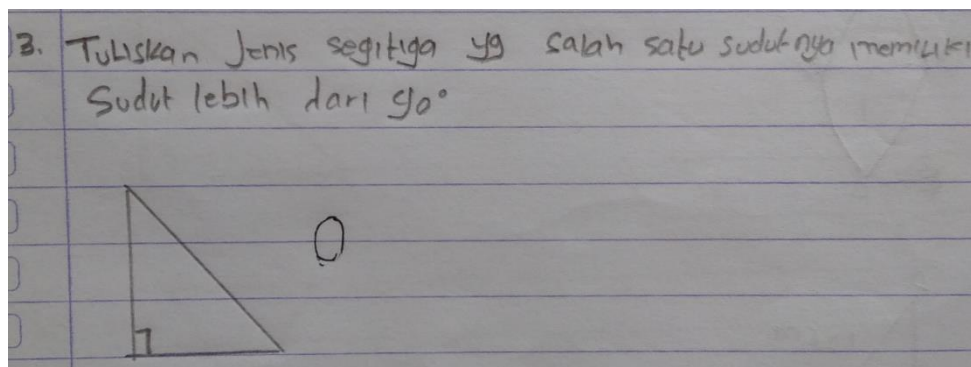 3. Tuliskan Jenis segitiga yg salah satu sudutnya memiliki
Sudut lebih dari 90°
0